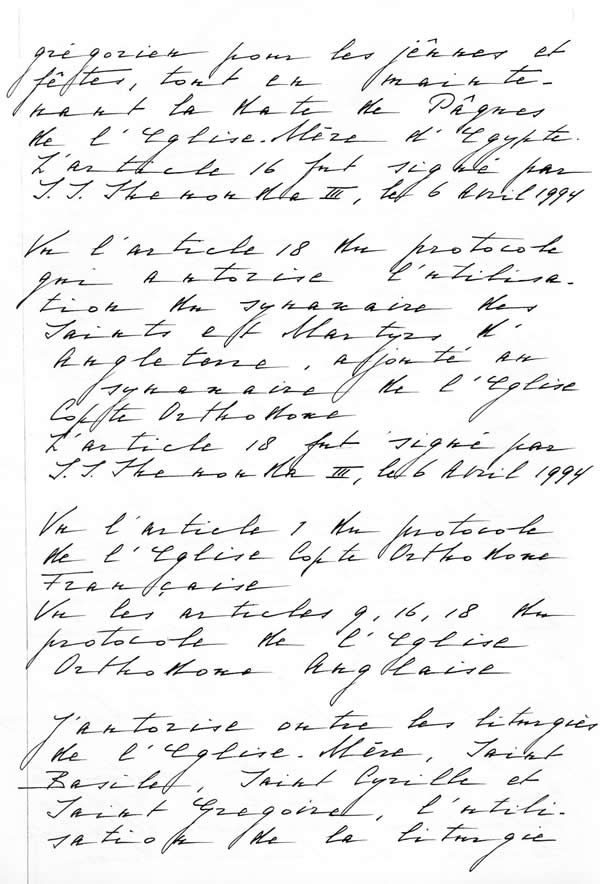 grégorien pour les jeûnes et
fêtes, tout en mainte-
nant la date de Pâques
de l'Eglise-Mère d'Egypte.
L'article 16 fut signé par
S.S. Shenouda III, le 6 Avril 1994
Vu l'article 18 du protocole
qui autorise l'utilisa-
tion du synaxaire des
Saints et Martyrs d'
Angleterre, ajouté au
synaxaire de l'Eglise
Copte Orthodoxe
L'article 18 fut signé par
S.S. Shenouda III, le 6 Avril 1994
Vu l'article 1 du protocole
de l'Eglise Copte Orthodoxe
Française
Vu les articles 9, 16, 18 du
protocole de l'Eglise
Orthodoxe Anglaise
J'autorise outre les liturgies
de l'Eglise-Mère, Saint
Basile, Saint Cyrille et
Saint Gregoire, l'utili-
sation de la liturgie